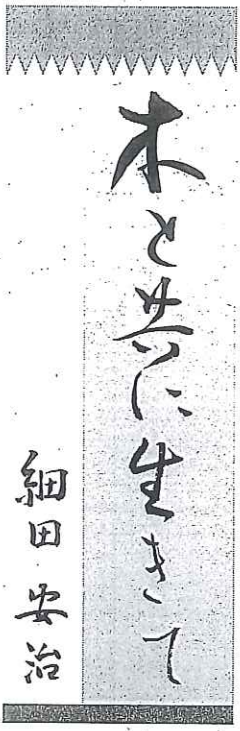 木と共に生きて
細田安治